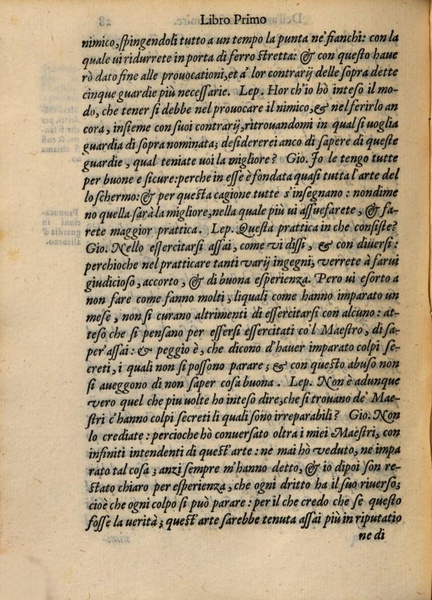 Libro Primo
nimico, spingendoli tutto a un tempo la punta ne' fianchi: con la
quale vi ridurrete in porta di ferro stretta: & con questo haue
rò dato fine alle prouocationi, et a' lor contrarij delle sopra dette
cinque guardie più necessarie. Lep. Hor ch'io hò inteso il mo-
do, che tener si debbe nel prouocare il nimico, & nel ferirlo an
cora, insieme con suoi contrarij, ritrouandomi in qual si uoglia
guardia di sopra nominata; desidererei anco di sapere di queste
guardie, qual teniate uoi la migliore? Gio. Io le tengo tutte
per buone e sicure: perche in esse è fondata quasi tutta l'arte del
lo schermo: & per questa cagione tutte s'insegnano: nondime
no quella sarà la migliore, nella quale più ui assuefarete, & fa-
rete maggior prattica. Lep. Questa prattica in che consiste?
Gio. Nello essercitarsi assai, come vi dissi, & con diuersi:
perhioche nel pratticare tanti varij ingegni, verrete à farui
giudicioso, accorto, & di buona esperienza. Però ui esorto a
non fare come fanno molti, liquali come hanno imparato un
mese, non si curano altrimenti di essercitarsi con alcuno: at-
teso che si pensano per essersi essercitati co'l Maestro, di sa-
per'assai: & peggio è, che dicono d'hauer imparato colpi se-
creti, i quali non si possono parare; & con questo abuso non
si aueggono di non saper cosa buona. Lep. Non è adunque
vero quel che piu uolte ho inteso dire, che si trouano de' Mae-
stri c'hanno colpi secreti li quali sono irreparabili? Gio. Non
lo crediate: percioche hò conuersato oltra i miei Maestri, con
infiniti intendenti di quest'arte: ne mai hò veduto, ne impa
rato tal cosa; anzi sempre m'hanno detto, & io dipoi son re-
stato chiaro per esperienza, che ogni dritto ha il suo riuerso;
cioè che ogni colpo si può parare: per il che credo che se questo
fosse la uerità; quest'arte sarebbe tenuta assai più in riputatio
ne di